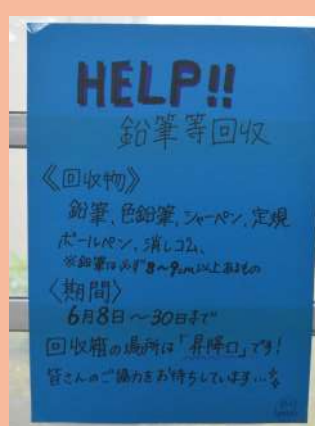 HELP!!
鉛筆等回収
《回収物》
鉛筆、色鉛筆、シャーペン、定規
ボールペン、消しゴム、
※鉛筆は必ず8〜9cm以上あるもの
〈期間〉
6月8日〜30日まで
回収箱の場所は「昇降口」です!
皆さんのご協力をお待ちしています…